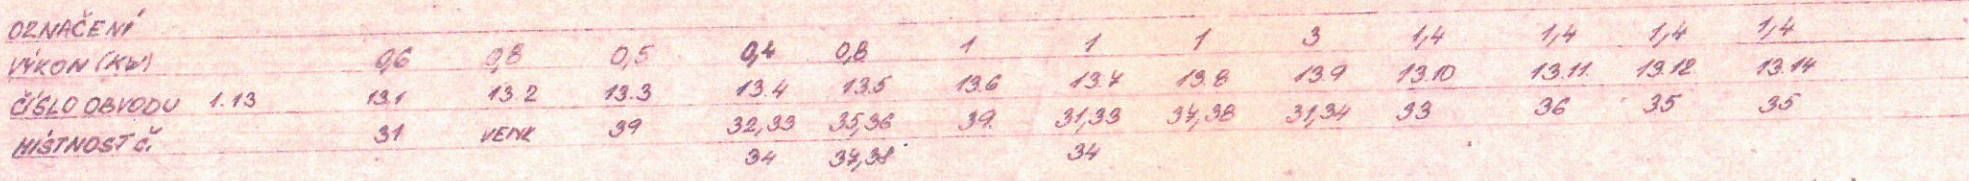 OZNAČENÍ
VÝKON (KW) 0,6 0,8 0,5 0,4 0,8 1 1 1 3 1,4 1,4 1,4 1,4
ČÍSLO OBVODU 1.13 13.1 13.2 13.3 13.4 13.5 13.6 13.7 13.8 13.9 13.10 13.11 13.12 13.14
MÍSTNOST Č. 31 VENK 39 32,33 35,36 39. 31,33 37,38 31,34 33 36 35 35
34 37,38 34